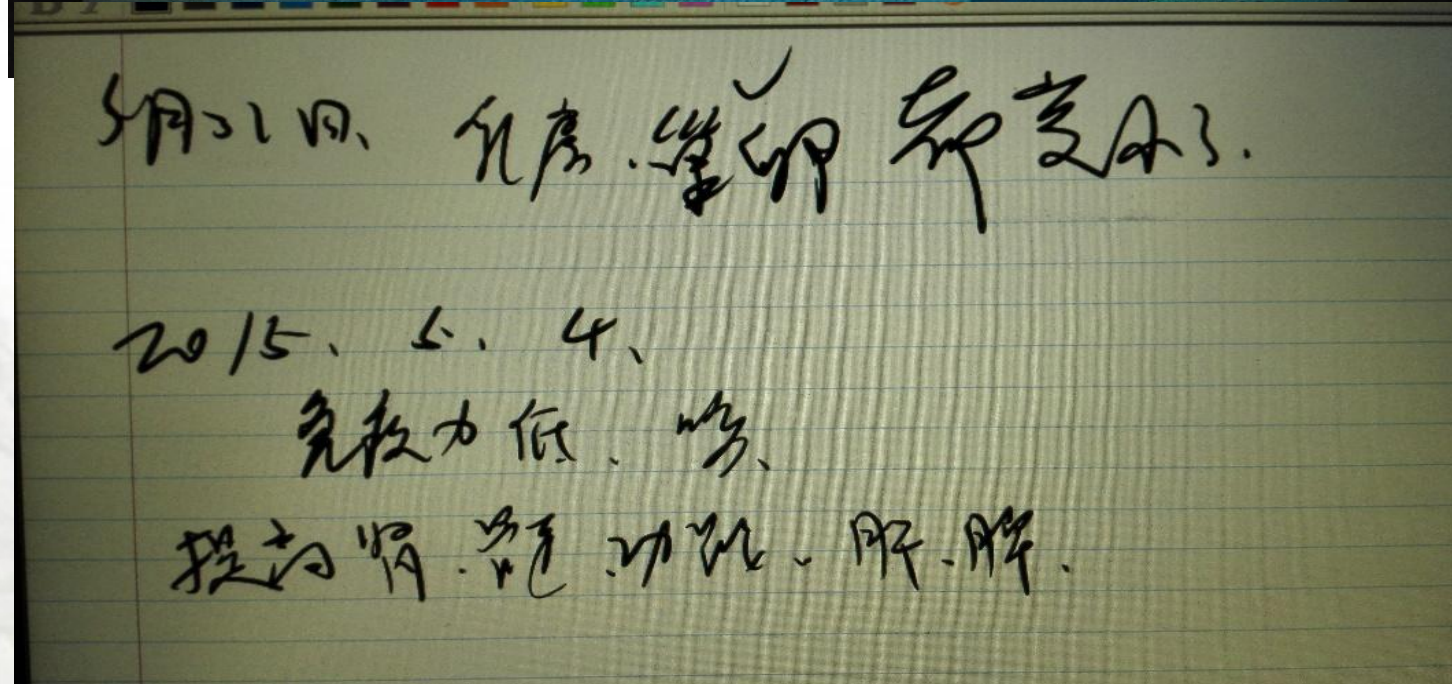 5月21日、乳房.睾卵都变小了.
2015、5、4、
免疫力低、
提高肾.功能、肝、脾.